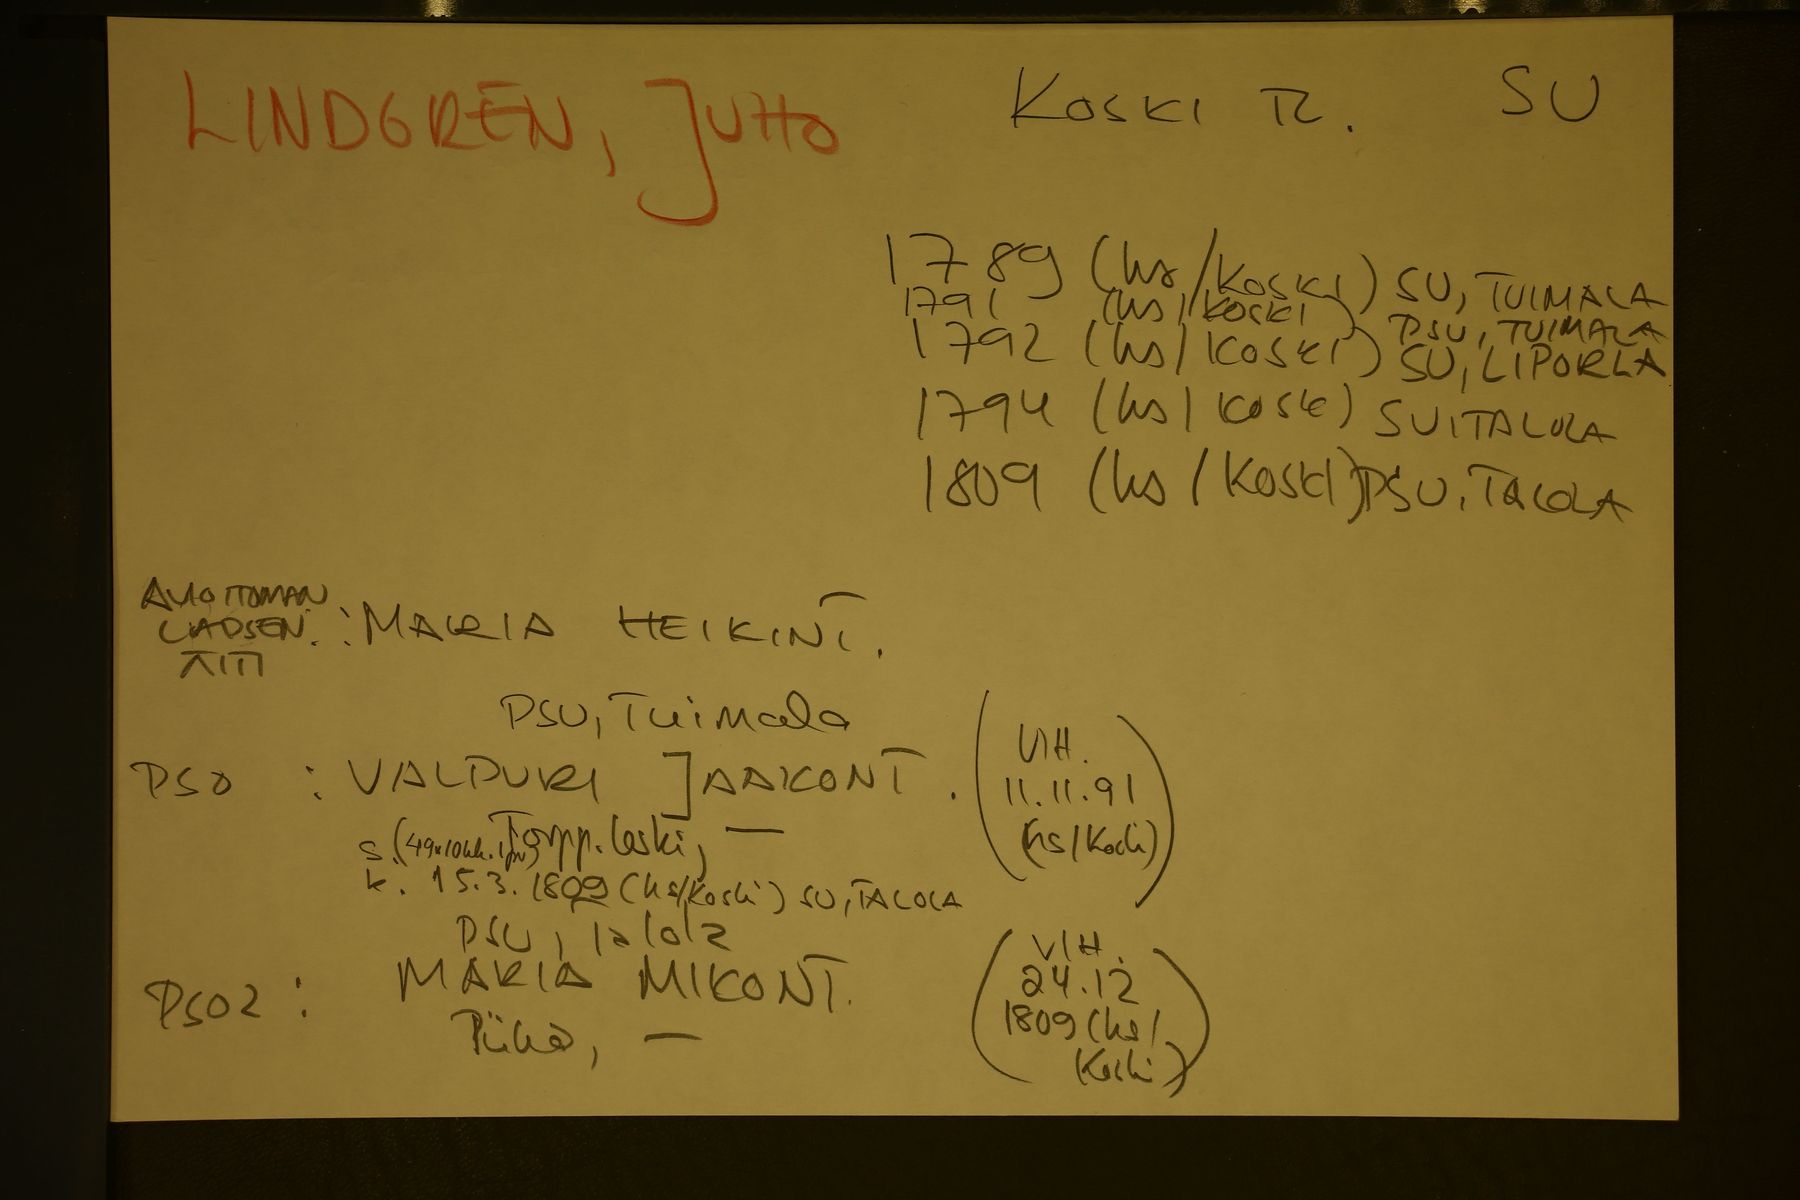 LINDGREN, JUHO
KOSKI TL. SU
1789 (hs/KOSKI) SU, TUIMALA
1791 (hs/KOSKI) PSU, TUIMALA
1792 (hs/KOSKI) SU, LIPORLA
1794 (hs/KOSKI) SU, TALOLA
1809 (hs/KOSKI) PSU, TALOLA
AVIOTTOMAN
LAPSEN : MARIA HEIKINT.
ÄITI
PSU, Tuimala
PSO : VALPURI JAAKONT. (VIH. 11.11.91 (hs/Koski))
s. (49v10kk. 1pv) Torpp. leski, —
k. 15.3.1809 (hs/Koski) SU, TALOLA
PSU, Talola
PSO2 : MARIA MIKONT. (VIH. 24.12 1809 (hs/Koski))
Piika, —